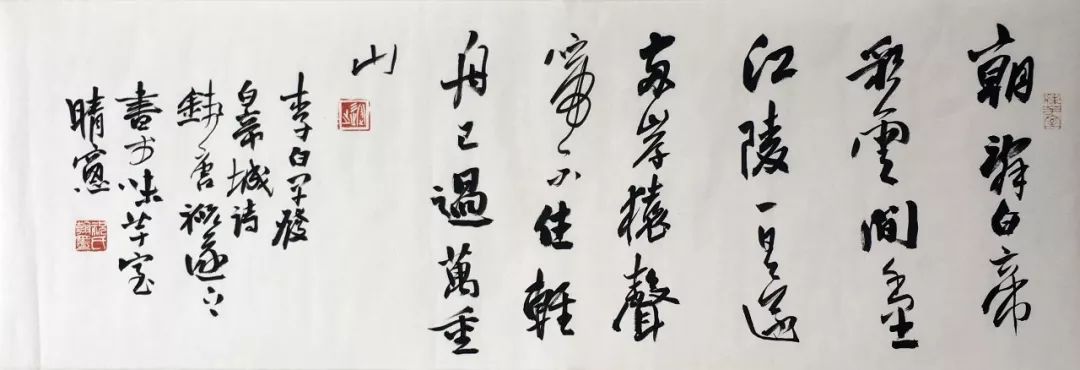 朝辭白帝
彩雲間千里
江陵一日還
兩岸猿聲
啼不住輕
舟已過萬重
山
李白早發
白帝城詩
錢唐祝遂之
書於味室
晴窗